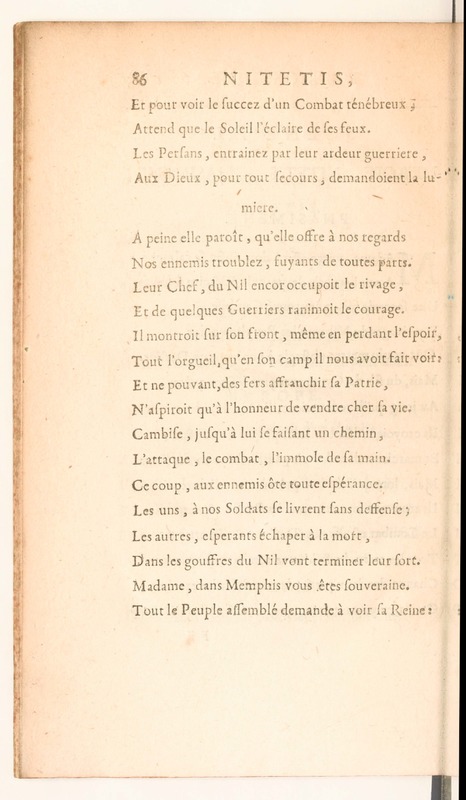 86 NITETIS,
Et pour voir le succez d'un Combat ténébreux ;
Attend que le Soleil l'éclaire de ses feux.
Les Persans, entrainez par leur ardeur guerriere,
Aux Dieux, pour tout secours, demandoient la lu-
miere.
A peine elle paroît, qu'elle offre à nos regards
Nos ennemis troublez, fuyants de toutes parts.
Leur Chef, du Nil encor occupoit le rivage,
Et de quelques Guerriers ranimoit le courage.
Il montroit sur son front, même en perdant l'espoir,
Tout l'orgueil, qu'en son camp il nous avoit fait voir:
Et ne pouvant, des fers affranchir sa Patrie,
N'aspiroit qu'à l'honneur de vendre cher sa vie.
Cambise, jusqu'à lui se faisant un chemin,
L'attaque, le combat, l'immole de sa main.
Ce coup, aux ennemis ôte toute espérance.
Les uns, à nos Soldats se livrent sans deffense ;
Les autres, esperants échaper à la mort,
Dans les gouffres du Nil vont terminer leur sort.
Madame, dans Memphis vous êtes souveraine.
Tout le Peuple assemblé demande à voir sa Reine :